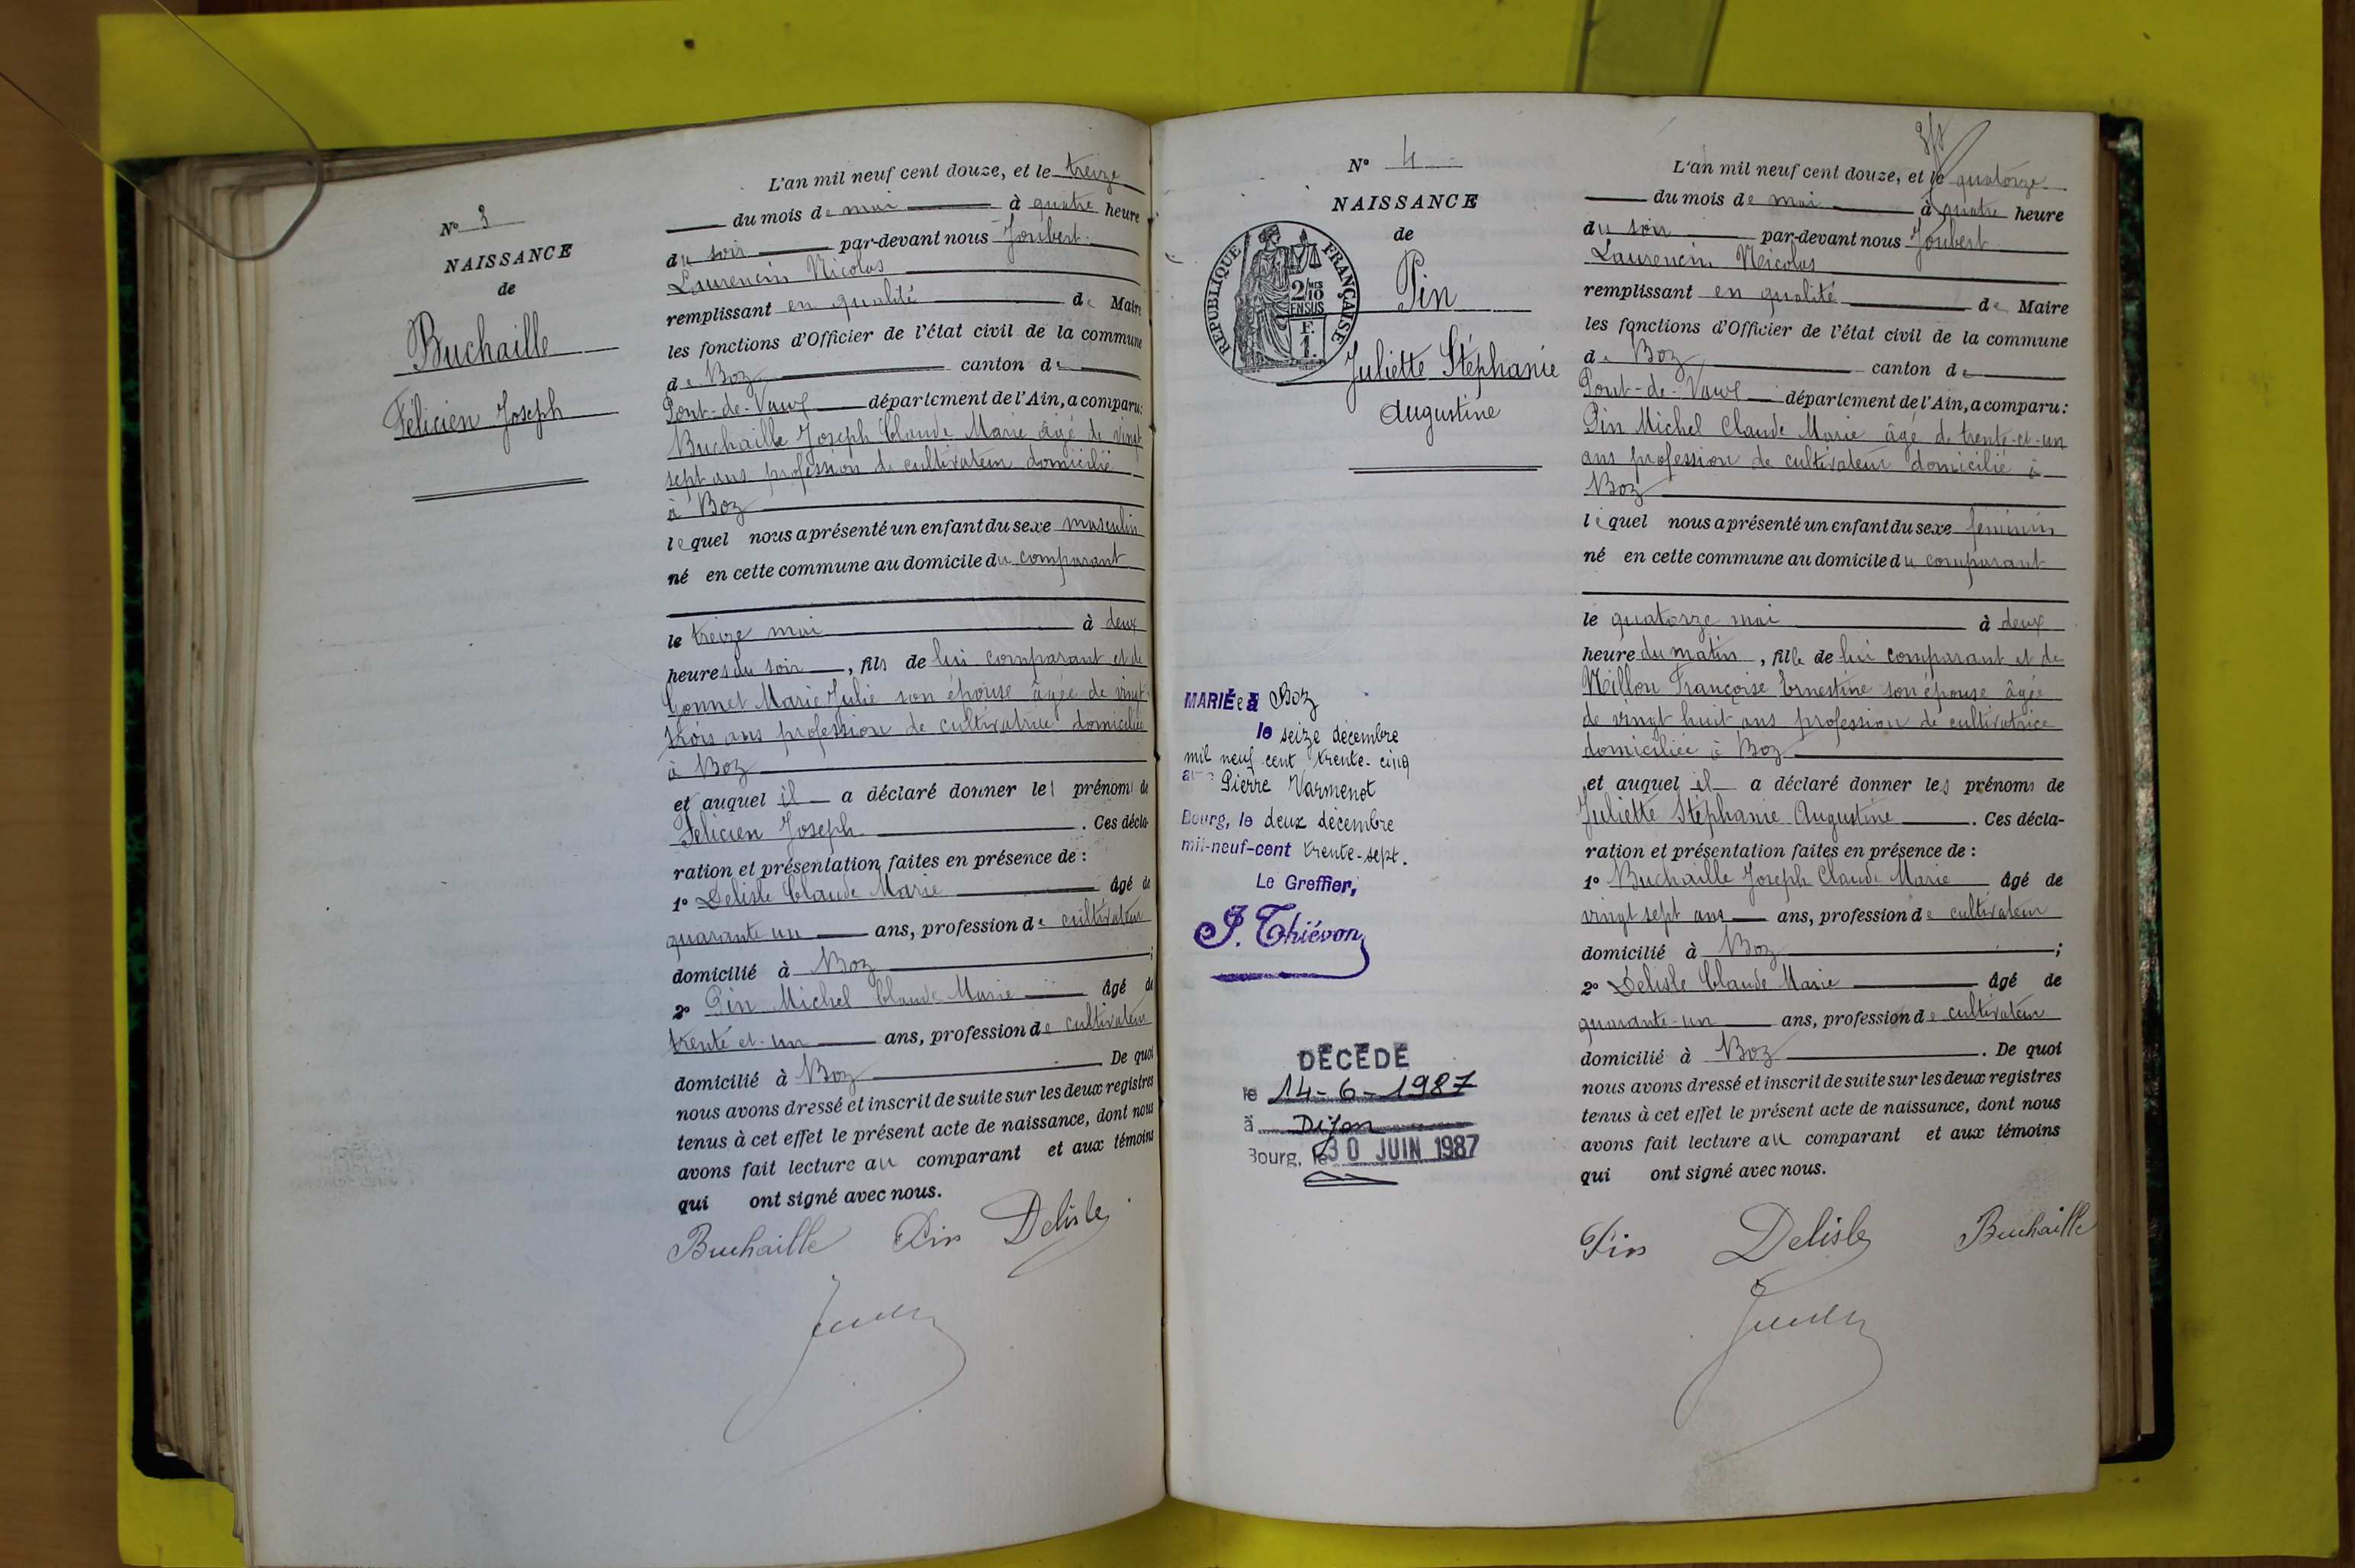 N° 3
NAISSANCE
de
Buchaille
Félicien Joseph
L'an mil neuf cent douze, et le treize
du mois de mai à quatre heure
du soir par-devant nous Joubert
Laurencin Nicolas
remplissant en qualité de Maire
les fonctions d'Officier de l'état civil de la commune
de Boz canton de
Pont-de-Vaux département de l'Ain, a comparu:
Buchaille Joseph Claude Marie âgé de vingt
sept ans profession de cultivateur domicilié
à Boz
lequel nous a présenté un enfant du sexe masculin
né en cette commune au domicile du comparant
le treize mai à deux
heures du soir, fils de lui comparant et de
Gonnet Marie Julie son épouse âgée de vingt
trois ans profession de cultivatrice domiciliée
à Boz
et auquel il a déclaré donner les prénoms de
Félicien Joseph. Ces décla-
ration et présentation faites en présence de :
1° Delisle Claude Marie âgé de
quarante un ans, profession de cultivateur
domicilié à Boz ;
2° Pin Michel Claude Marie âgé de
trente et un ans, profession de cultivateur
domicilié à Boz. De quoi
nous avons dressé et inscrit de suite sur les deux registres
tenus à cet effet le présent acte de naissance, dont nous
avons fait lecture au comparant et aux témoins
qui ont signé avec nous.
Buchaille Pin Delisle
N° 4
NAISSANCE
de
Pin
Juliette Stéphanie
Augustine
REPUBLIQUE FRANÇAISE
2/10
EN SUS
F.
1.
MARIÉe à Boz
le seize décembre
mil neuf cent trente-cinq
avec Pierre Varmenot
Bourg, le deux décembre
mil-neuf-cent trente-sept.
Le Greffier,
J. Thiévon
DÉCÉDÉ
le 14-6-1987
à Dijon
Bourg, le 30 JUIN 1987
L'an mil neuf cent douze, et le quatorze
du mois de mai à quatre heure
du soir par-devant nous Joubert
Laurencin Nicolas
remplissant en qualité de Maire
les fonctions d'Officier de l'état civil de la commune
de Boz canton de
Pont-de-Vaux département de l'Ain, a comparu:
Pin Michel Claude Marie âgé de trente-et-un
ans profession de cultivateur domicilié à
Boz
lequel nous a présenté un enfant du sexe féminin
né en cette commune au domicile du comparant
le quatorze mai à deux
heure du matin, fille de lui comparant et de
Françoise Ernestine son épouse âgée
de vingt huit ans profession de cultivatrice
domiciliée à Boz
et auquel il a déclaré donner les prénoms de
Juliette Stéphanie Augustine. Ces décla-
ration et présentation faites en présence de :
1° Buchaille Joseph Claude Marie âgé de
vingt sept ans ans, profession de cultivateur
domicilié à Boz ;
2° Delisle Claude Marie âgé de
quarante-un ans, profession de cultivateur
domicilié à Boz. De quoi
nous avons dressé et inscrit de suite sur les deux registres
tenus à cet effet le présent acte de naissance, dont nous
avons fait lecture au comparant et aux témoins
qui ont signé avec nous.
Pin Delisle Buchaille